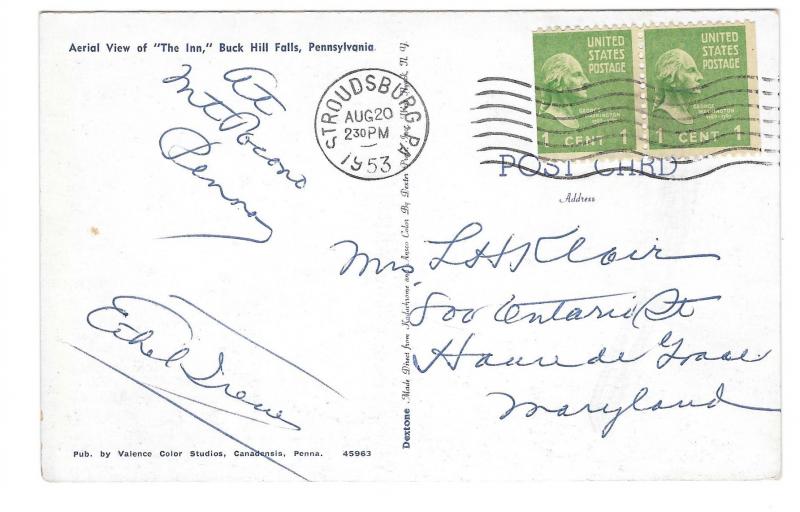 Aerial View of "The Inn," Buck Hill Falls, Pennsylvania
At
Mt Pocono
Penna
Ethel Irene
Pub. by Valence Color Studios, Canadensis, Penna. 45963
STROUDSBURG, PA
AUG 20
2 30 PM
1953
Dextone Made Direct from Kodachrome and Ansco Color By Dexter Press, Inc.
UNITED
STATES
POSTAGE
GEORGE
WASHINGTON
1 CENT 1
UNITED
STATES
POSTAGE
GEORGE
WASHINGTON
1789-1797
1 CENT 1
POST CARD
Address
Mrs L H Klair
800 Ontario St
Havre de Grace
Maryland